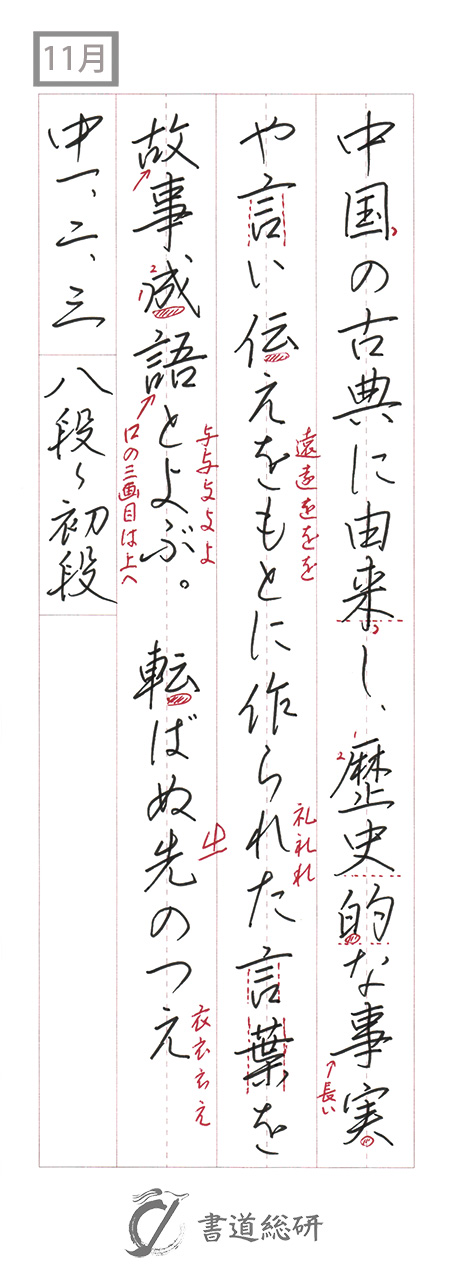 11月
中国の古典に由来し、歴史的な事実
長い
や言い伝えをもとに作られた言葉を
遠遠をを
礼礼れ
故事成語とよぶ。 転ばぬ先のつえ
与与よよよ
口の三画目は上へ
生
衣衣ええ
中一、二、三 八段〜初段
書道総研